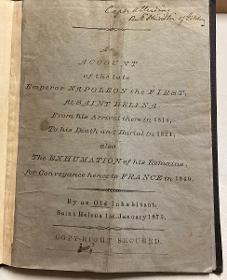 An
ACCOUNT
of the late
Emperor NAPOLEON the FIRST,
At SAINT HELENA
From his Arrival there in 1815,
To his Death and Burial in 1821;
also
The EXHUMATION of his Remains,
for Conveyance hence to FRANCE in 1840.
By an Old Inhabitant,
Saint Helena 1st January 1875.
COPY-RIGHT SECURED.